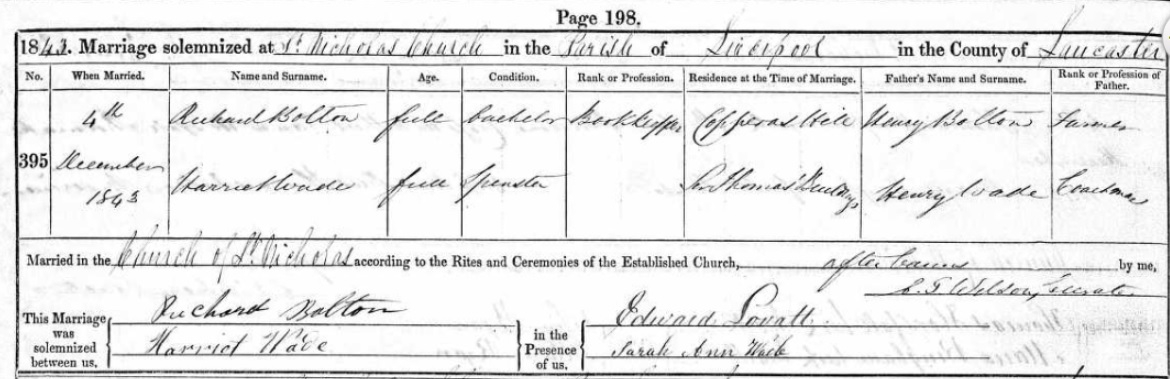 Page 198.
1843. Marriage solemnized at St Nicholas Church in the Parish of Liverpool in the County of Lancaster
No. When Married. Name and Surname. Age. Condition. Rank or Profession. Residence at the Time of Marriage. Father's Name and Surname. Rank or Profession of Father.
4th Richard Bolton full bachelor Bookkeeper Copperas Hill Henry Bolton Farmer
395 December
1843 Harriet Wade full Spinster St Thomas' Buildings Henry Wade Coachman
Married in the Church of St Nicholas according to the Rites and Ceremonies of the Established Church, after banns by me,
Wilson, Curate
This Marriage was solemnized between us, Richard Bolton
Harriet Wade
in the Presence of us. Edward Lovatt
Sarah Ann